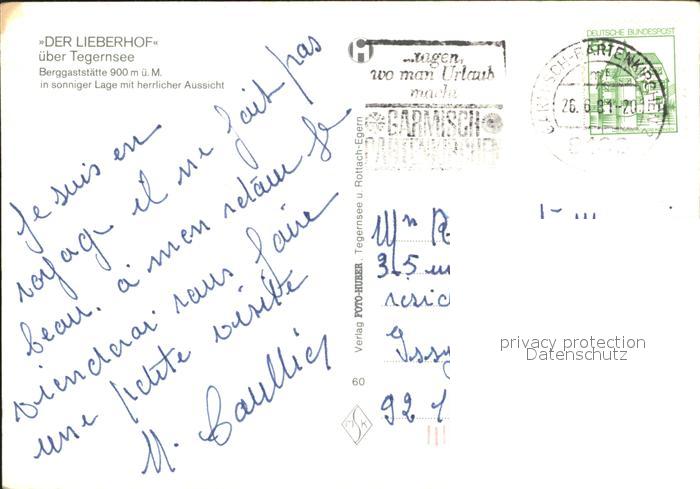 »DER LIEBERHOF«
über Tegernsee
Berggaststätte 900 m ü. M.
in sonniger Lage mit herrlicher Aussicht
Je suis en
voyage il ne fait pas
beau. à mon retour je
viendrai vous faire
une petite visite
M.
Verlag FOTO-HUBER, Tegernsee u. Rottach-Egern
60
...sagen,
wo man Urlaub
macht
GARMISCH
PARTENKIRCHEN
GARMISCH-PARTENKIRCHEN
26.6.81-20
DEUTSCHE BUNDESPOST
35
resid
Issy
92 1
privacy protection
Datenschutz